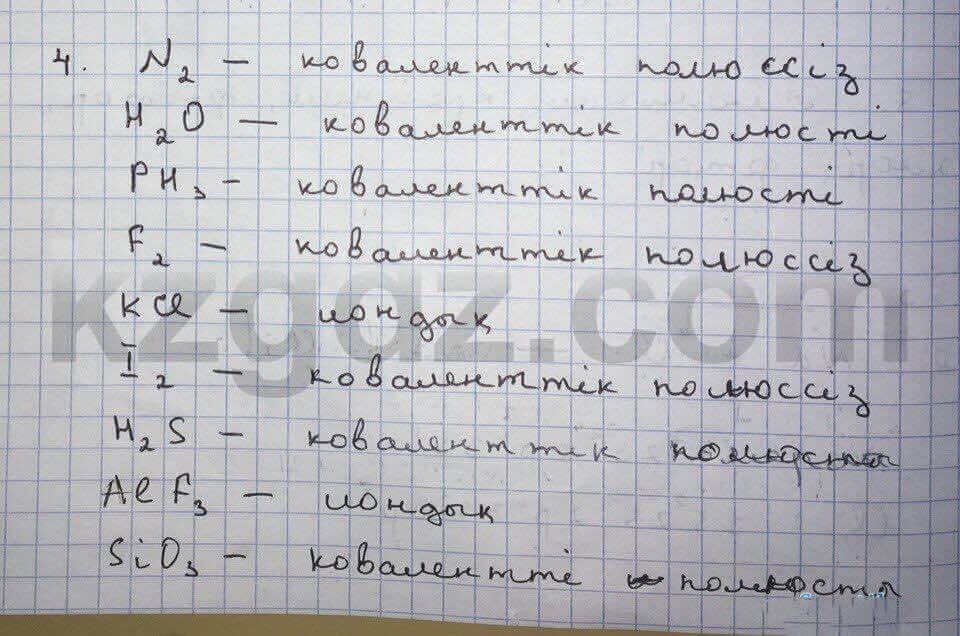 4. N2 — коваленттік полюссіз
H2O — коваленттік полюсті
PH3 — коваленттік полюсті
F2 — коваленттік полюссіз
kzgdz.com
KCl — иондық
I2 — коваленттік полюссіз
H2S — коваленттік
AlF3 — иондық
SiO3 — ковалентті